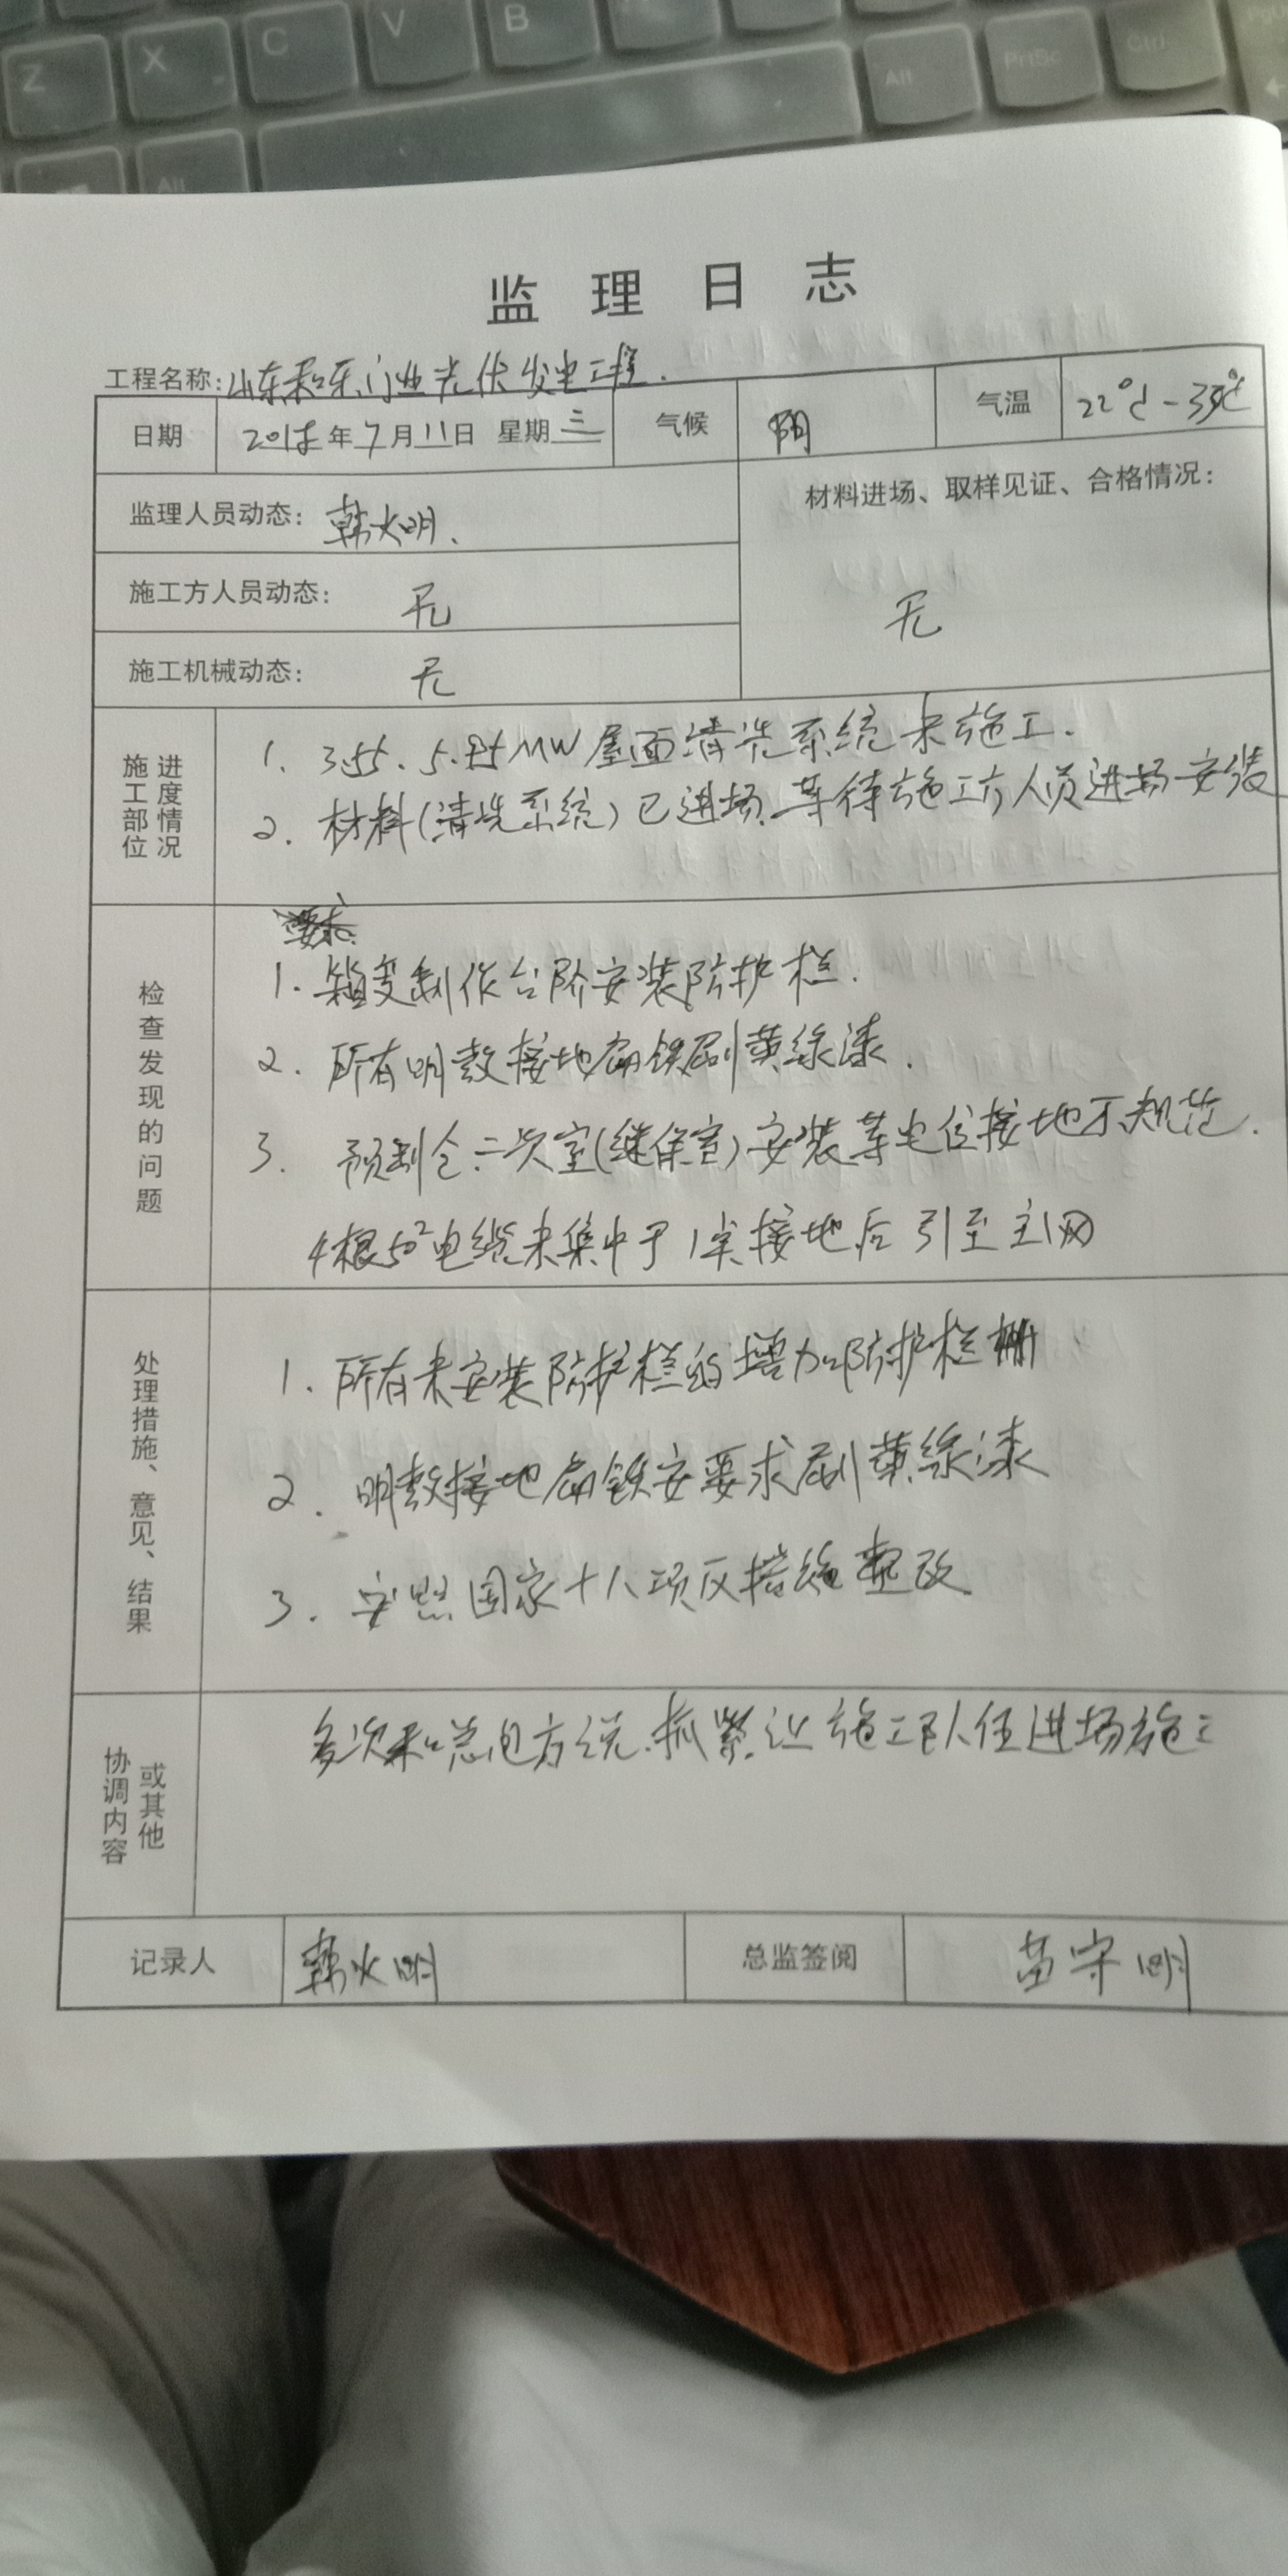 Z X C V B Alt PrtSc Ctrl
Alt
监理日志
工程名称:山东和乐门业光伏发电工程.
日期 2018年7月11日 星期三 气候 阴 气温 22℃-35℃
监理人员动态: 韩火明、
材料进场、取样见证、合格情况:
无
施工方人员动态: 无
施工机械动态: 无
施工部位
进度情况
1. 3.55、5.95MW屋面清洗系统未施工.
2. 材料(清洗系统)已进场、等待施工方人员进场安装
检查发现的问题
1. 箱变制作台阶安装防护栏.
2. 所有明敷接地扁铁刷黄绿漆.
3. 预制仓二次室(继保室)安装等电位接地不规范.
4根50²电缆未集中于1点接地后引至主网
处理措施、意见、结果
1. 所有未安装防护栏的增加防护栏栅
2. 明敷接地扁铁安要求刷黄绿漆
3. 安照国家十八项反措施整改
协调内容
或其他
多次和总包方说.抓紧让施工队伍进场施工
记录人 韩火明 总监签阅 苗守明